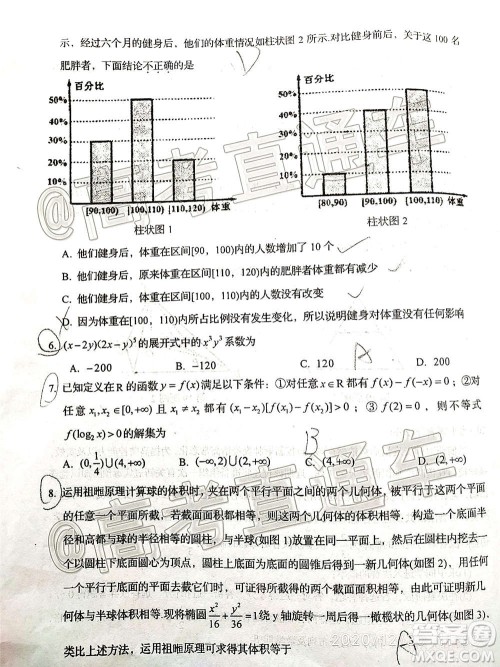 示，经过六个月的健身后，他们的体重情况如柱状图 2 所示.对比健身前后，关于这 100 名
肥胖者，下面结论不正确的是
百分比
50%
40%
30%
20%
10%
[90,100) [100,110) [110,120) 体重
柱状图 1
百分比
50%
40%
30%
20%
10%
[80,90) [90,100) [100,110) 体重
柱状图 2
A. 他们健身后，体重在区间[90，100)内的人数增加了 10 个
B. 他们健身后，原来体重在区间[110，120)内的肥胖者体重都有减少
C. 他们健身后，体重在区间[100，110)内的人数没有改变
D. 因为体重在[100，110)内所占比例没有发生变化，所以说明健身对体重没有任何影响
6. (x-2y)(2x-y)⁵的展开式中的 x³y³系数为
A
A. -200 B. -120 C. 120 D. 200
7. 已知定义在 R 的函数 y=f(x)满足以下条件：①对任意 x∈R 都有 f(x)-f(-x)=0；②对
任意 x₁,x₂∈[0,+∞) 且 x₁≠x₂ 都有(x₁-x₂)[f(x₁)-f(x₂)]>0；③ f(2)=0，则不等式
f(log₂x)>0 的解集为
B
A. (0,1/4)∪(4,+∞) B. (-∞,2)∪(2,+∞) C. (4,+∞) D. (2,+∞)
8. 运用祖暅原理计算球的体积时，夹在两个平行平面之间的两个几何体，被平行于这两个平面的
任意一个平面所截，若截面面积都相等，则这两个几何体的体积相等. 构造一个底面半
径和高都与球的半径相等的圆柱，与半球(如图 1)放置在同一平面上，然后在圆柱内挖去一
个以圆柱下底面圆心为顶点，圆柱上底面为底面的圆锥后得到一新几何体(如图 2)，用任
何一个平行于底面的平面去截它们时，可证得所截得的两个截面面积相等，由此证明新几
何体与半球体积相等.现将椭圆 x²/16+y²/36=1绕 y 轴旋转一周后得一橄榄状的几何体(如图 3)，
类比上述方法，运用祖暅原理可求得其体积等于
A
@高考直通车
@高考直通车
答案圈
MXQE.COM